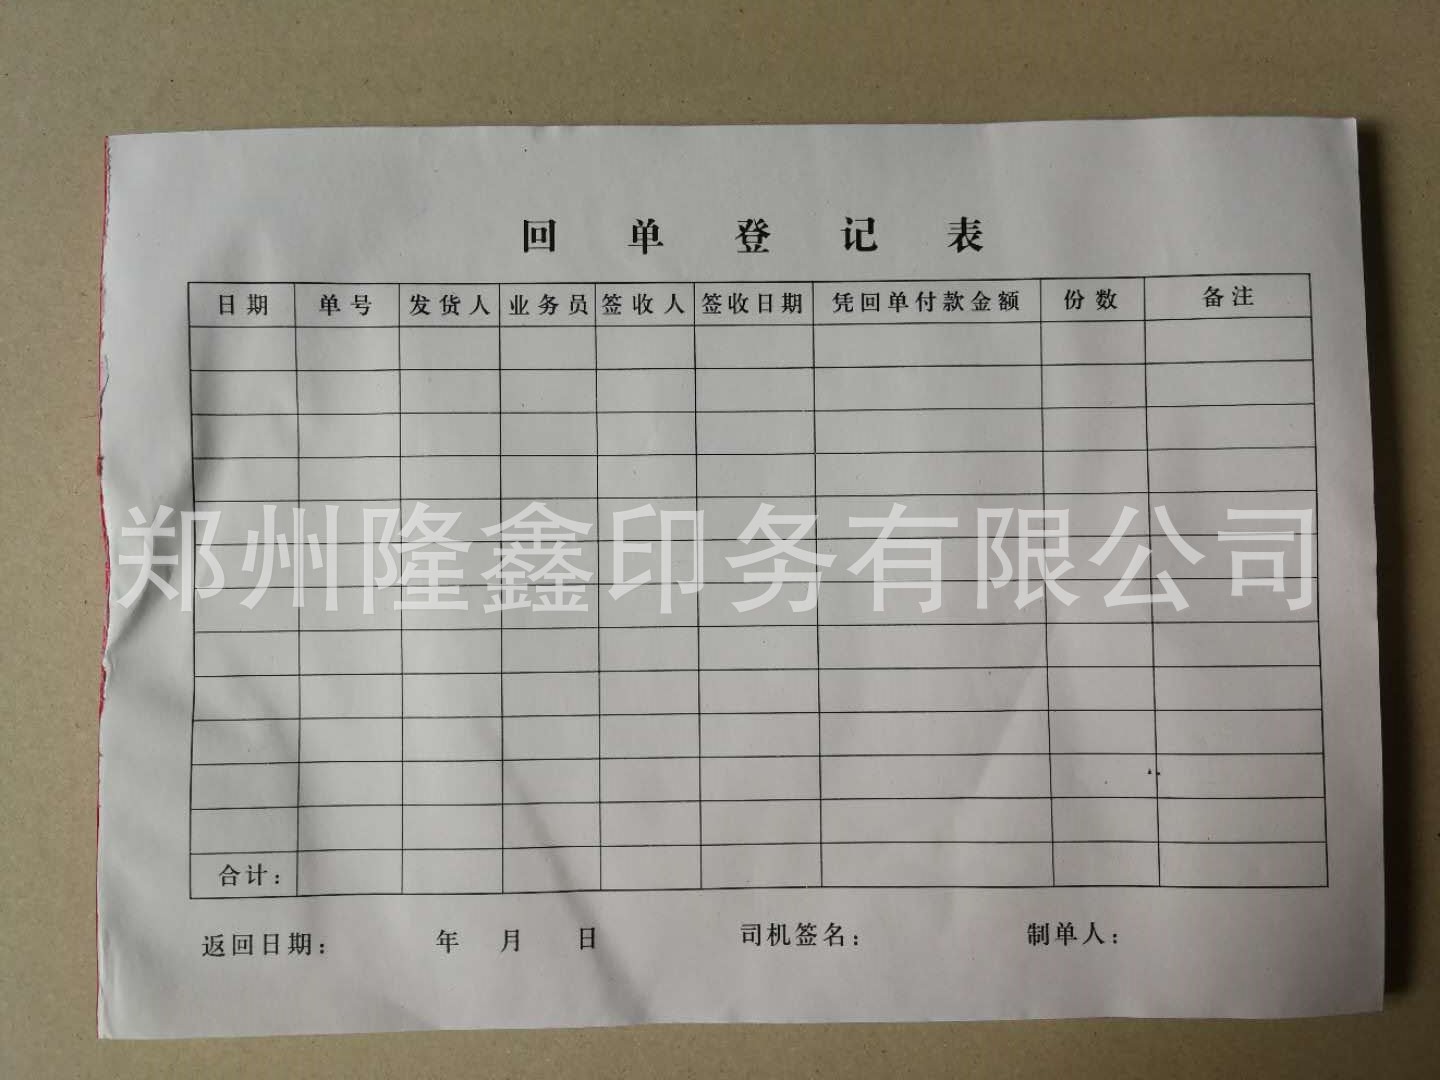 回单登记表
日期 单号 发货人 业务员 签收人 签收日期 凭回单付款金额 份数 备注
郑州隆鑫印务有限公司
合计：
返回日期： 年 月 日 司机签名： 制单人：